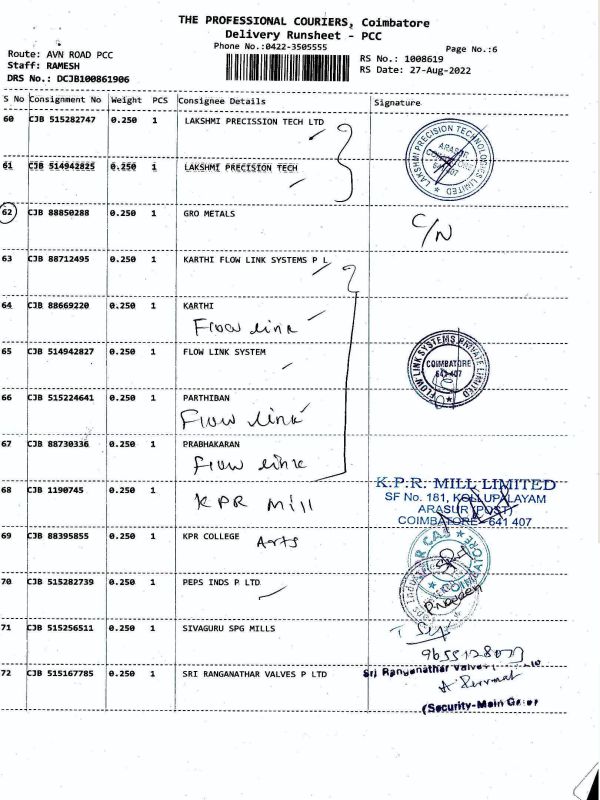 THE PROFESSIONAL COURIERS, Coimbatore
Delivery Runsheet - PCC
Phone No.:0422-3505555
Page No.:6
Route: AVN ROAD PCC
Staff: RAMESH
DRS No.: DCJB100861906
RS No.: 1008619
RS Date: 27-Aug-2022
S No Consignment No Weight PCS Consignee Details Signature
60 CJB 515282747 0.250 1 LAKSHMI PRECISSION TECH LTD
LAKSHMI PRECISION TECHNOLOGIES LIMITED
ARASUR
641 407
61 CJB 514942825 0.250 1 LAKSHMI PRECISION TECH
62 CJB 88850288 0.250 1 GRO METALS C/N
63 CJB 88712495 0.250 1 KARTHI FLOW LINK SYSTEMS P L
64 CJB 88669220 0.250 1 KARTHI
Flow link
65 CJB 514942827 0.250 1 FLOW LINK SYSTEM
FLOW LINK SYSTEMS PRIVATE LIMITED
COIMBATORE
641 407
66 CJB 515224641 0.250 1 PARTHIBAN
Flow link
67 CJB 88730336 0.250 1 PRABHAKARAN
Flow link
68 CJB 1190745 0.250 1 KPR Mill
K.P.R. MILL LIMITED
SF No. 181, KOLLUPALAYAM
ARASUR (POST)
COIMBATORE - 641 407
69 CJB 88395855 0.250 1 KPR COLLEGE Arts
70 CJB 515282739 0.250 1 PEPS INDS P LTD
Praveen
71 CJB 515256511 0.250 1 SIVAGURU SPG MILLS
72 CJB 515167785 0.250 1 SRI RANGANATHAR VALVES P LTD
Sri Ranganathar Valves
(Security-Main Gate)